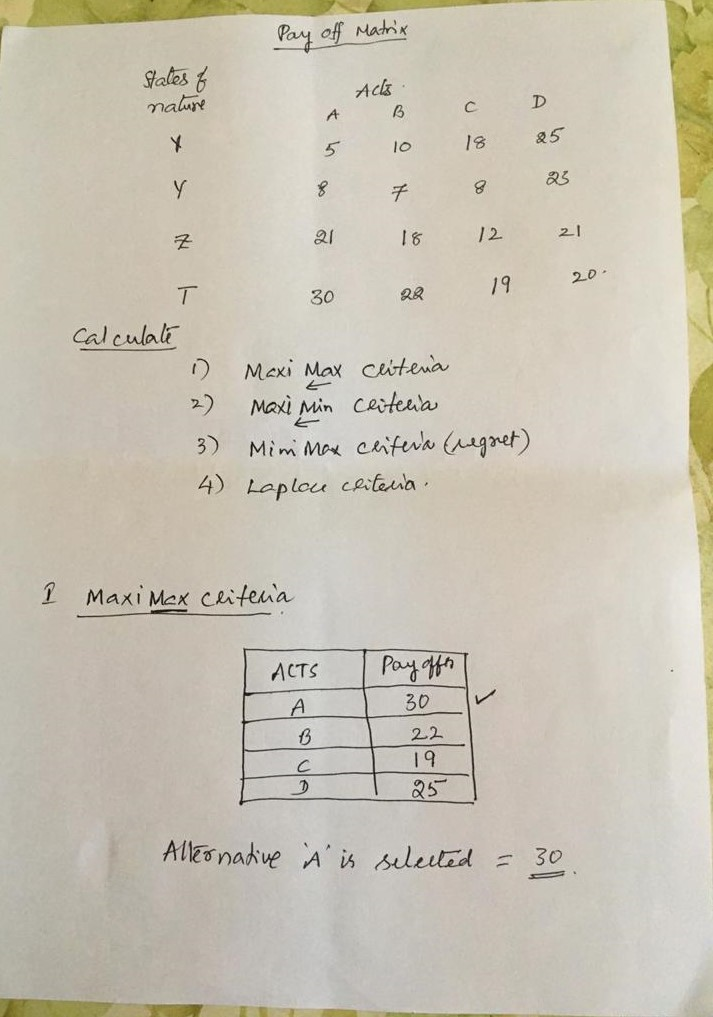 Pay off Matrix
States of nature
Acts
A B C D
X 5 10 18 25
Y 8 7 8 23
Z 21 18 12 21
T 30 22 19 20.
Calculate
1) Maxi Max criteria
2) Maxi Min criteria
3) Mini Max criteria (regret)
4) Laplace criteria.
I Maxi Max criteria
ACTS Pay offs
A 30 ✓
B 22
C 19
D 25
Alternative 'A' is selected = 30.